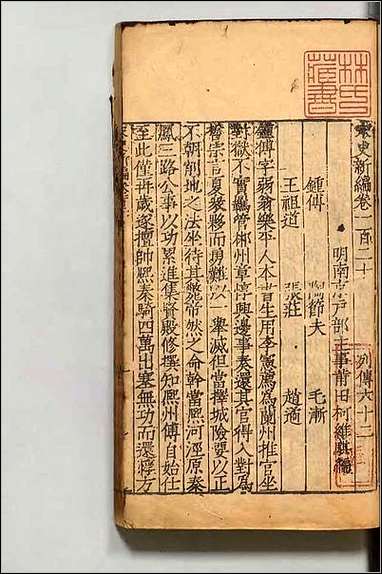 宋史新編卷一百二十
列傳六十二
明南京戶部主事莆田柯維騏編
鍾傅 陶節夫 毛漸
王祖道 張莊 趙遹
鍾傅字弱翁樂平人本書生用李憲薦為蘭州推官坐
對獄不實羈管郴州章惇興邊事奏還其官得入對為
哲宗言夏羌夥而勇難以一舉滅但當擇城險要以正
不朝削地之法坐待其斃帝然之命幹當熙河涇原秦
鳳三路公事以功累進集賢殿修撰知熙州傅自始仕
至此僅再歲遂擅帥熙秦騎四萬出塞無功而還惇方
林氏藏書